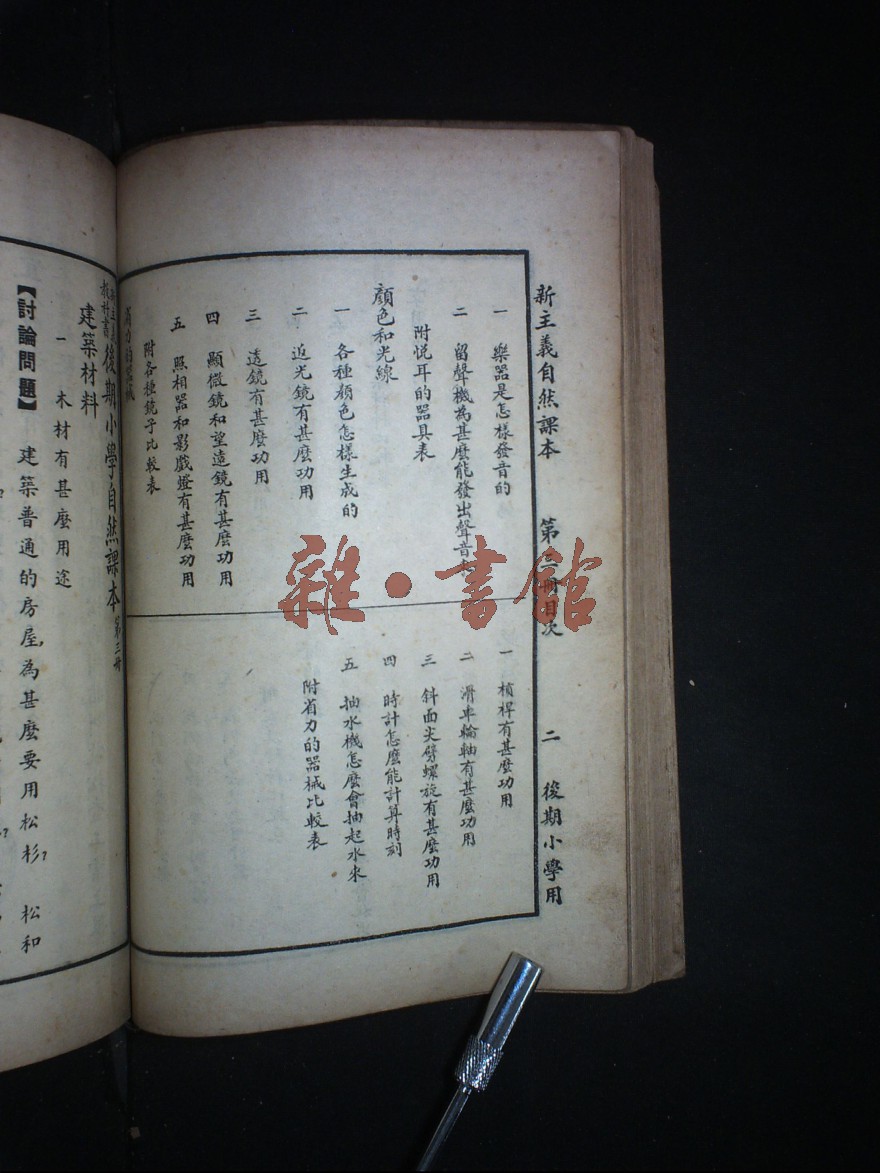 新主義自然課本 第三冊目次 二 後期小學用
一 樂器是怎樣發音的
二 留聲機為甚麼能發出聲音
附悅耳的器具表
顏色和光線
一 各種顏色怎樣生成的
二 返光鏡有甚麼功用
三 透鏡有甚麼功用
四 顯微鏡和望遠鏡有甚麼功用
五 照相器和影戲燈有甚麼功用
附各種鏡子比較表
省力的器械
一 槓桿有甚麼功用
二 滑車輪軸有甚麼功用
三 斜面尖劈螺旋有甚麼功用
四 時計怎麼能計算時刻
五 抽水機怎麼會抽起水來
附省力的器械比較表
雜·書館
新主義教科書 後期小學自然課本 第三冊
建築材料
一 木材有甚麼用途
【討論問題】 建築普通的房屋,為甚麼要用松杉? 松和